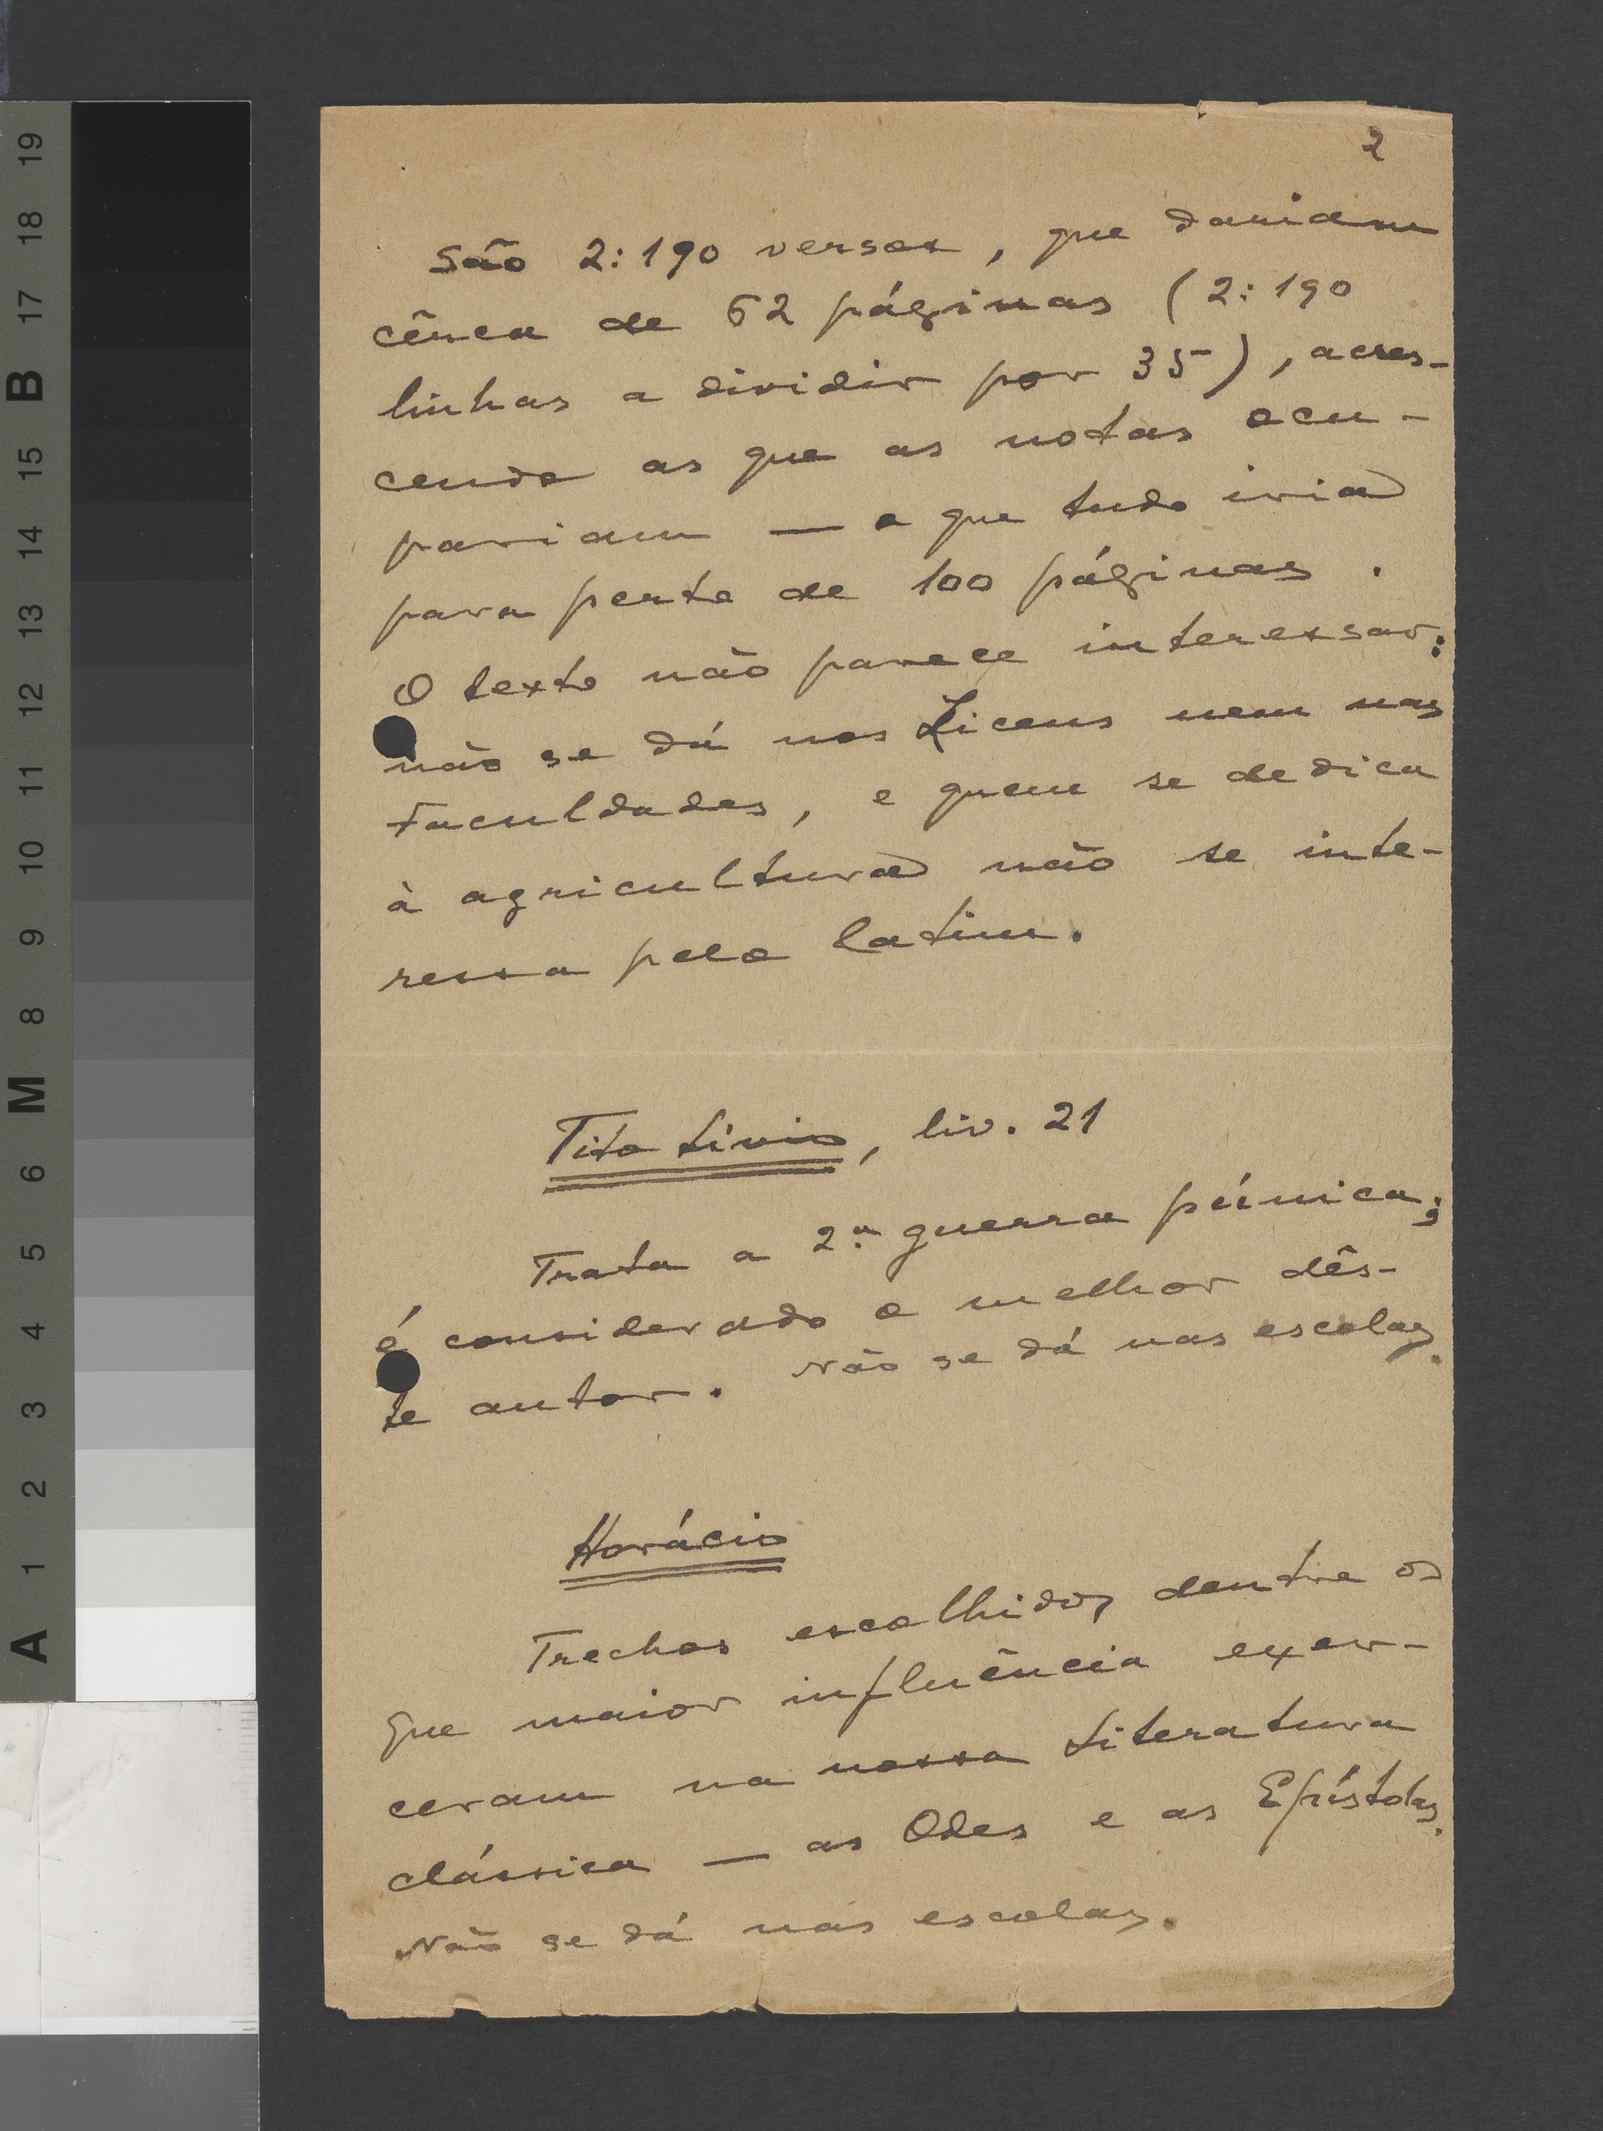 2
São 2:190 versos, que dariam
cêrca de 62 páginas (2:190
linhas a dividir por 35), acres-
cendo as que as notas ocu-
pariam — o que tudo iria
para perto de 100 páginas.
O texto não parece interessar:
não se dá nos Liceus nem nas
Faculdades, e quem se dedica
à agricultura não se inte-
ressa pelo latim.
Tito Lívio, liv. 21
Trata a 2.ª guerra púnica;
é considerado o melhor dês-
te autor. Não se dá nas escolas.
Horácio
Trechos escolhidos dentre os
que maior influência exer-
ceram na nossa Literatura
clássica — as Odes e as Epístolas.
Não se dá nas escolas.
A 1 2 3 4 5 6 M 8 9 10 11 12 13 14 15 B 17 18 19